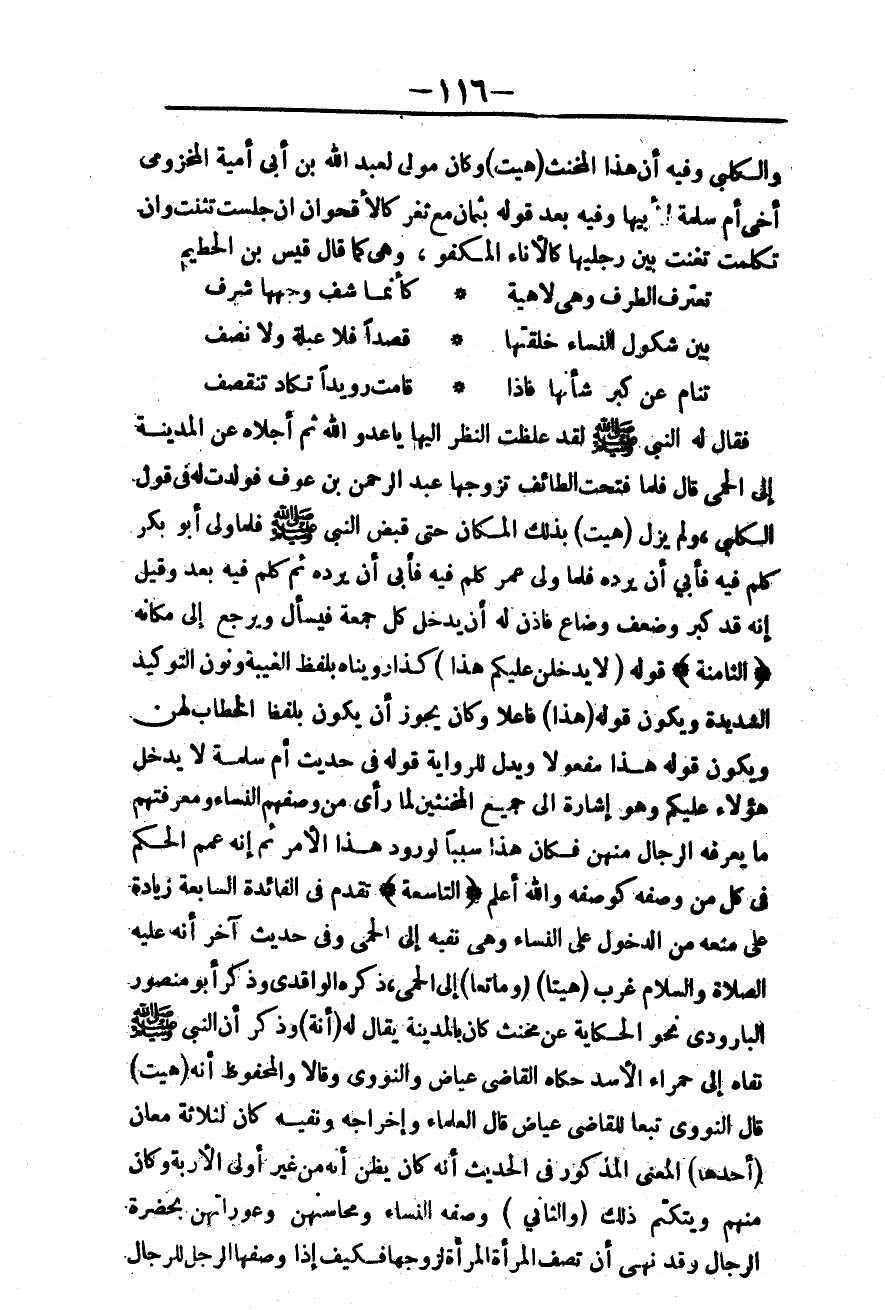 -١١٦-
والكلبي وفيه أن هذا المخنث (هيت) وكان مولى لعبد الله بن أبي أمية المخزومى
أخى أم سلمة لأبيها وفيه بعد قوله بثمان مع ثغر كالأقحوان ان جلست تثنت وان
تكلمت تغنت بين رجليها كالأناء المكفو ، وهى كما قال قيس بن الخطيم
تعترف الطرف وهى لاهية * كأنما شف وجهها شرف
بين شكول النساء خلقتها * قصداً فلا عبلة ولا نصف
تنام عن كبر شأنها فاذا * قامت رويداً تكاد تنقصف
فقال له النبي ﷺ لقد علظت النظر اليها ياعدو الله ثم أجلاه عن المدينة
إلى الحمى قال فلما فتحت الطائف تزوجها عبد الرحمن بن عوف فولدت له فى قول
الكلبي ، ولم يزل (هيت) بذلك المكان حتى قبض النبي ﷺ فلما ولى أبو بكر
كلم فيه فأبي أن يرده فلما ولى عمر كلم فيه فأبى أن يرده ثم كلم فيه بعد وقيل
إنه قد كبر وضعف وضاع فاذن له أن يدخل كل جمعة فيسأل ويرجع إلى مكانه
﴿ الثامنة ﴾ قوله ( لا يدخلن عليكم هذا ) كذا رويناه بلفظ الغيبة ونون التوكيد
الشديدة ويكون قوله (هذا) فاعلا وكان يجوز أن يكون بلفظ الخطاب لهن
ويكون قوله هذا مفعولا ويدل للرواية قوله فى حديث أم سلمة لا يدخل
هؤلاء عليكم وهو إشارة الى جميع المخنثين لما رأى من وصفهم النساء ومعرفتهم
ما يعرفه الرجال منهن فكان هذا سبباً لورود هذا الأمر ثم إنه عمم الحكم
فى كل من وصفه كوصفه والله أعلم ﴿ التاسعة ﴾ تقدم فى الفائدة السابعة زيادة
على منعه من الدخول على النساء وهى نفيه إلى الحمى وفى حديث آخر أنه عليه
الصلاة والسلام غرب (هيتا) (وماتعا) إلى الحمى، ذكره الواقدى وذكر أبو منصور
البارودى نحو الحكاية عن مخنث كان بالمدينة يقال له (أنة) وذكر أن النبي ﷺ
نفاه إلى حمراء الأسد حكاه القاضى عياض والنووى وقالا والمحفوظ أنه (هيت)
قال النووى تبعا للقاضى عياض قال العلماء وإخراجه ونفيه كان لثلاثة معان
(أحدها) المعنى المذكور فى الحديث أنه كان يظن أنه من غير أولى الأربة وكان
منهم ويتكتم ذلك (والثاني ) وصفه النساء ومحاسنهن وعوراتهن بحضرة
الرجال وقد نهى أن تصف المرأة المرأة لزوجها فكيف إذا وصفها الرجل للرجال